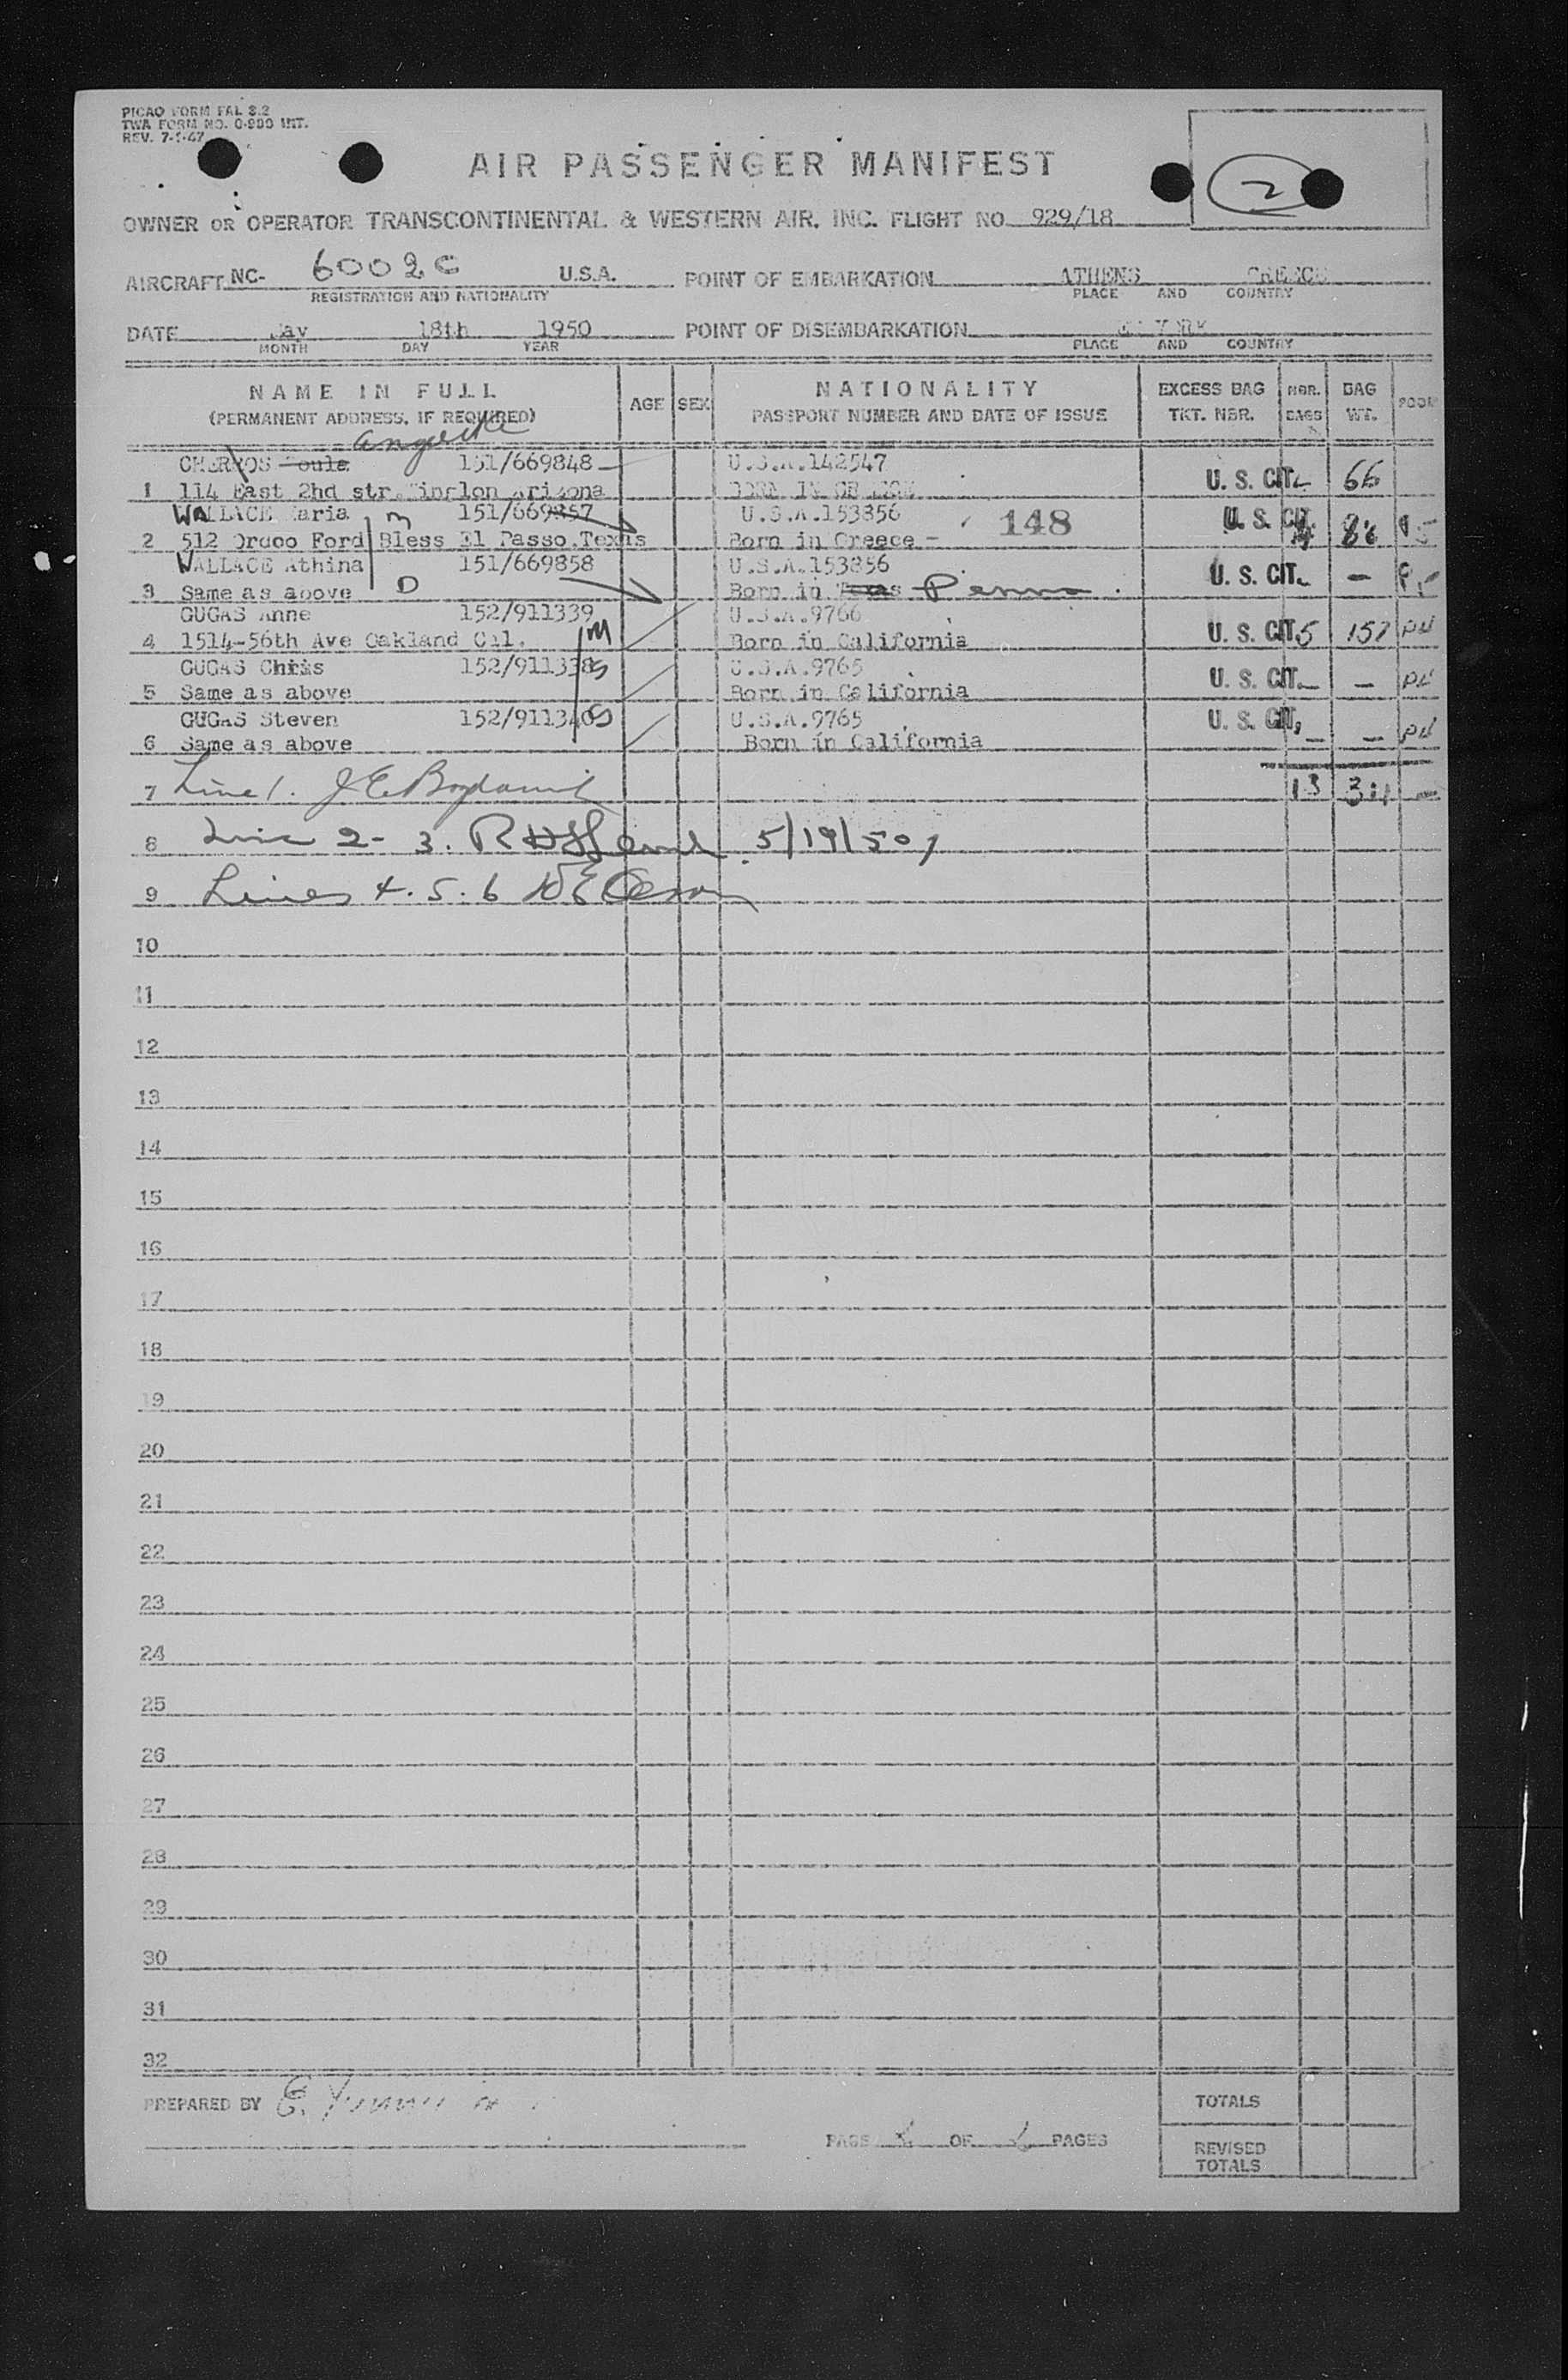 PICAO FORM FAL 8.2
TWA FORM NO. 0-900 INT.
REV. 7-1-47
2
AIR PASSENGER MANIFEST
OWNER OR OPERATOR TRANSCONTINENTAL & WESTERN AIR, INC. FLIGHT NO 929/18
AIRCRAFT NC- 6002C U.S.A. POINT OF EMBARKATION ATHENS GREECE
REGISTRATION AND NATIONALITY PLACE AND COUNTRY
DATE May 18th 1950 POINT OF DISEMBARKATION YORK
MONTH DAY YEAR PLACE AND COUNTRY
NAME IN FULL AGE SEX NATIONALITY EXCESS BAG NBR. BAG
(PERMANENT ADDRESS, IF REQUIRED) PASSPORT NUMBER AND DATE OF ISSUE TKT. NBR. BAGS WT.
151/669848 U.S.A.142547
1 114 East 2nd str. U. S. CIT. 66
WALLACE Maria m 151/669857 U.S.A.153856 148 U. S. CIT.
2 512 Ford Bless El Passo Texas Born in Greece - 4
WALLACE Athina 151/669858 U.S.A.153856 U. S. CIT. -
3 Same as above D Born in Texas Penna.
GUGAS Anne 152/911339 U.S.A.9766
4 1514-56th Ave Oakland Cal. m Born in California U. S. CIT. 5 157 PU
GUGAS Chris 152/911338 S U.S.A.9765 U. S. CIT. - - PU
5 Same as above Born in California
GUGAS Steven 152/911340 S U.S.A.9765 U. S. CIT. - - PU
6 Same as above Born in California
7 Line 1. 13
8 Line 2- 3. 5/19/50
9 Lines 4. 5. 6
10
11
12
13
14
15
16
17
18
19
20
21
22
23
24
25
26
27
28
29
30
31
32
PREPARED BY E. TOTALS
PAGE OF PAGES REVISED
TOTALS